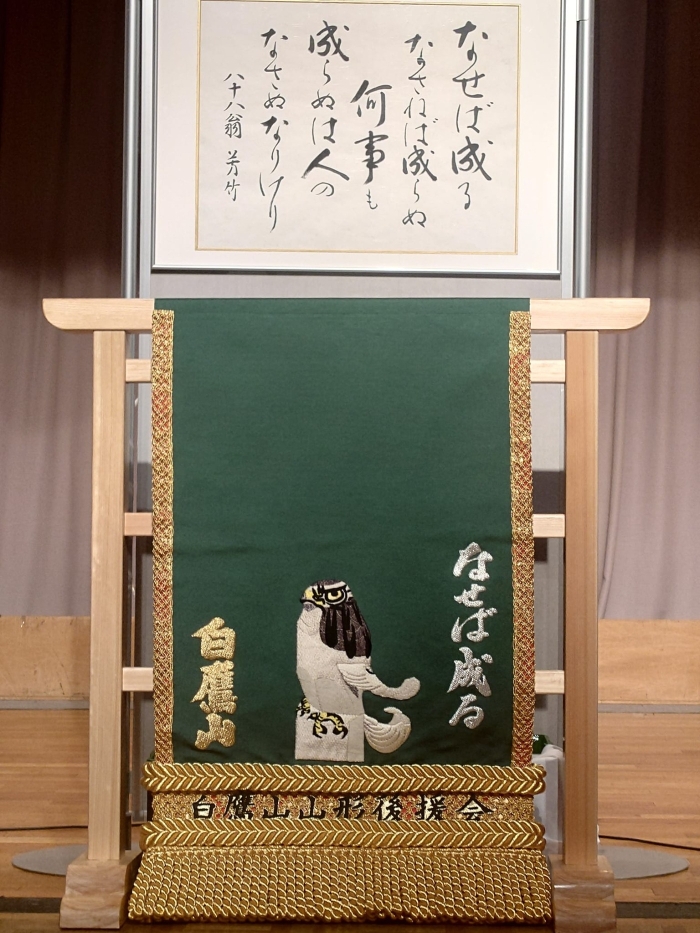 なせば成る
なさねば成らぬ
何事も
成らぬは人の
なさぬなりけり
八十八翁 芳竹
なせば成る
白鷹山
白鷹山山形後援会